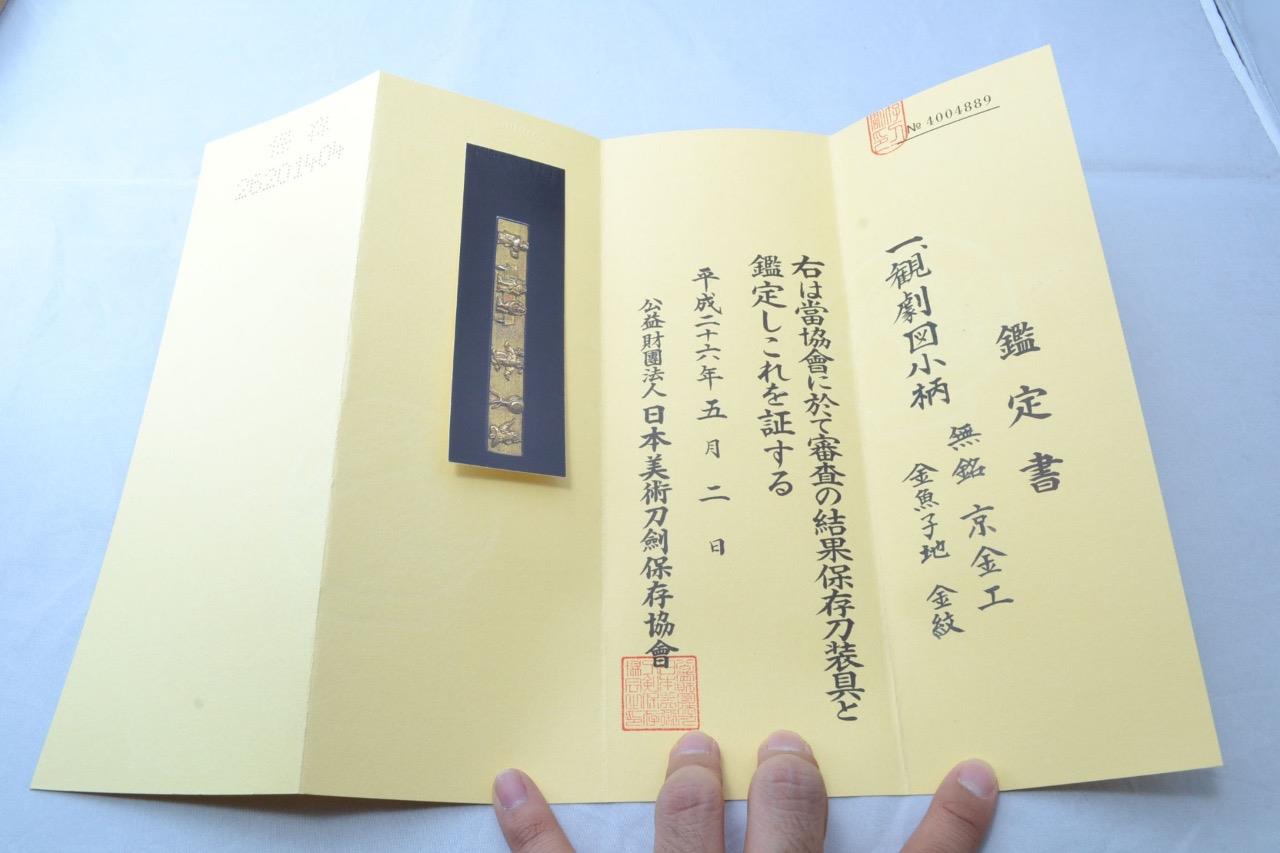 № 4004889
鑑定書
一、観劇図小柄
無銘 京金工
金魚子地 金紋
右は當協會に於て審査の結果保存刀装具と
鑑定しこれを証する
平成二十六年五月二日
公益財團法人日本美術刀劍保存協會
26201404